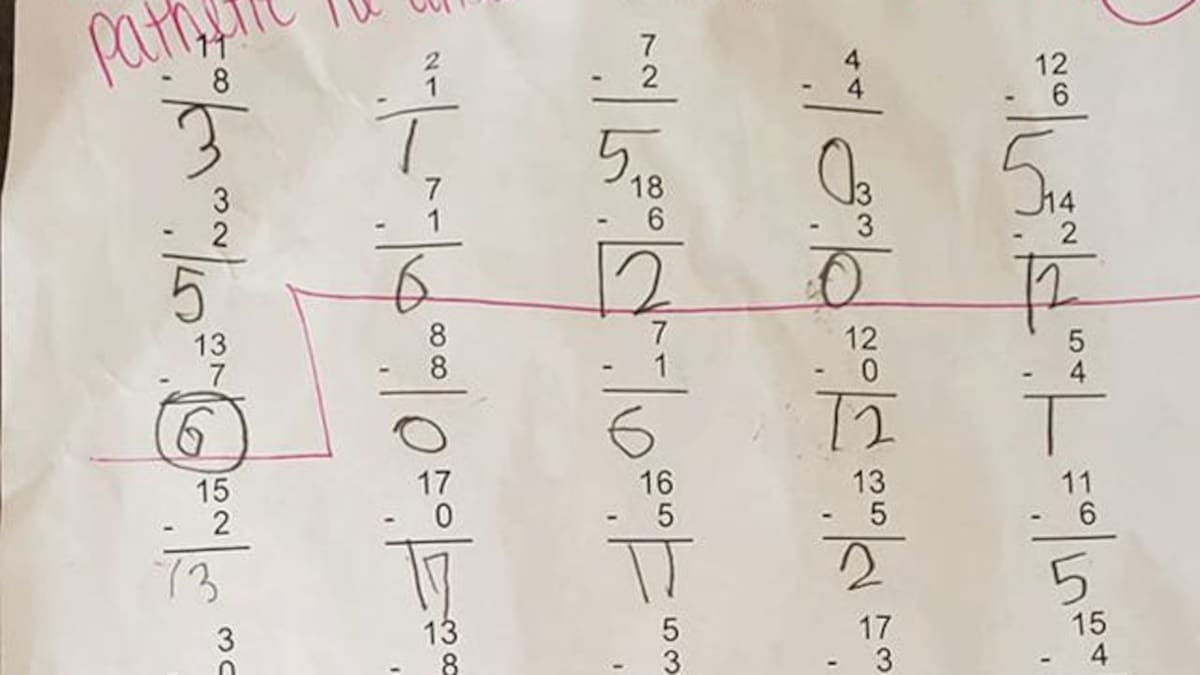 pathetic
11 2 7 4 12
- 8 - 1 - 2 - 4 - 6
3 1 5 0 5
3 7 18 3 14
- 2 - 1 - 6 - 3 - 2
5 6 12 0 12
13 8 7 12 5
- 7 - 8 - 1 - 0 - 4
6 0 6 12 1
15 17 16 13 11
- 2 - 0 - 5 - 5 - 6
13 17 11 2 5
3 13 5 17 15
0 - 8 - 3 - 3 - 4